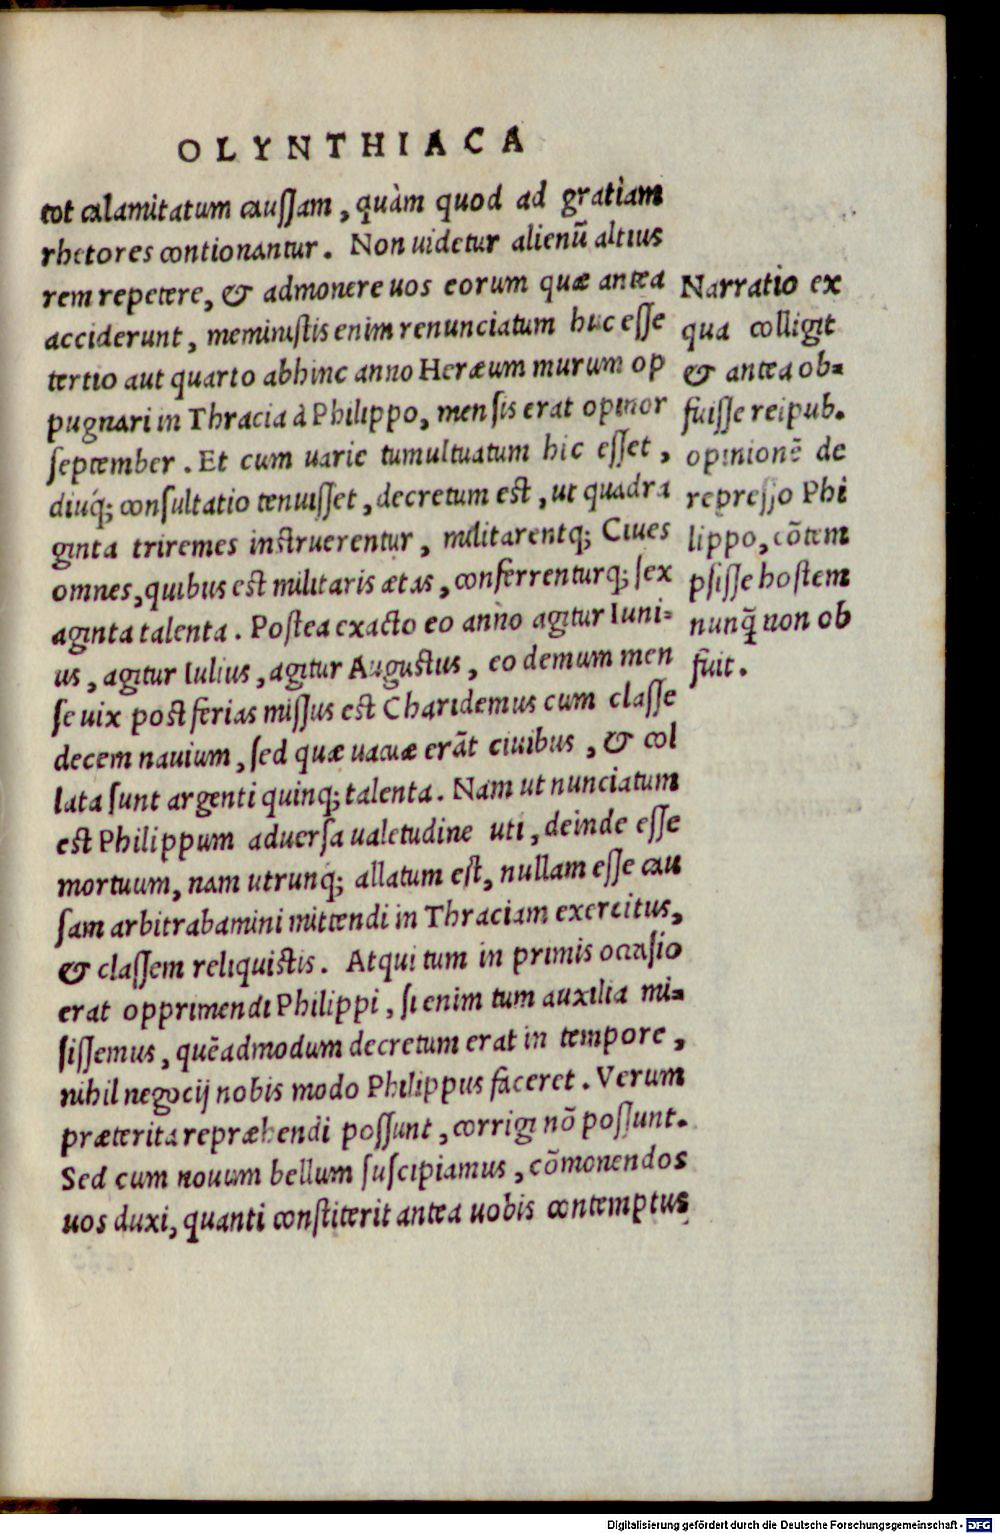 OLYNTHIACA
tot calamitatum cauſſam, quàm quod ad gratiam
rhetores contionantur. Non uidetur alienũ altius
rem repetere, & admonere uos eorum quæ antea
acciderunt, meminiſtis enim renunciatum huc eſſe
tertio aut quarto abhinc anno Heræum murum op
pugnari in Thracia à Philippo, menſis erat opinor
ſeptember. Et cum uarie tumultuatum hic eſſet,
diuq́; conſultatio tenuiſſet, decretum eſt, ut quadra
ginta triremes inſtruerentur, militarentq́; Ciues
omnes, quibus est militaris ætas, conferrenturq́; ſex
aginta talenta. Poſtea exacto eo anno agitur Iuni-
us, agitur Iulius, agitur Auguſtus, eo demum men
ſe uix poſt ferias miſſus eſt Charidemus cum claſſe
decem nauium, ſed quæ uacuæ erãt ciuibus, & col
lata ſunt argenti quinq; talenta. Nam ut nunciatum
eſt Philippum aduerſa ualetudine uti, deinde eſſe
mortuum, nam utrunq́; allatum eſt, nullam eſſe cau
ſam arbitrabamini mittendi in Thraciam exercitus,
& claſſem reliquiſtis. Atqui tum in primis occaſio
erat opprimendi Philippi, ſi enim tum auxilia mi-
ſiſſemus, quẽadmodum decretum erat in tempore,
nihil negocij nobis modo Philippus faceret. Verum
præterita repræhendi poſſunt, corrigi nõ poſſunt.
Sed cum nouum bellum ſuſcipiamus, cõmonendos
uos duxi, quanti conſtiterit antea uobis contemptus
Narratio ex
qua colligit
& antea ob-
fuiſſe reipub.
opinionẽ de
repreſſo Phi
lippo, cõtem
pſiſſe hoſtem
nunq̃ non ob
fuit.
Digitalisierung gefördert durch die Deutsche Forschungsgemeinschaft - DFG